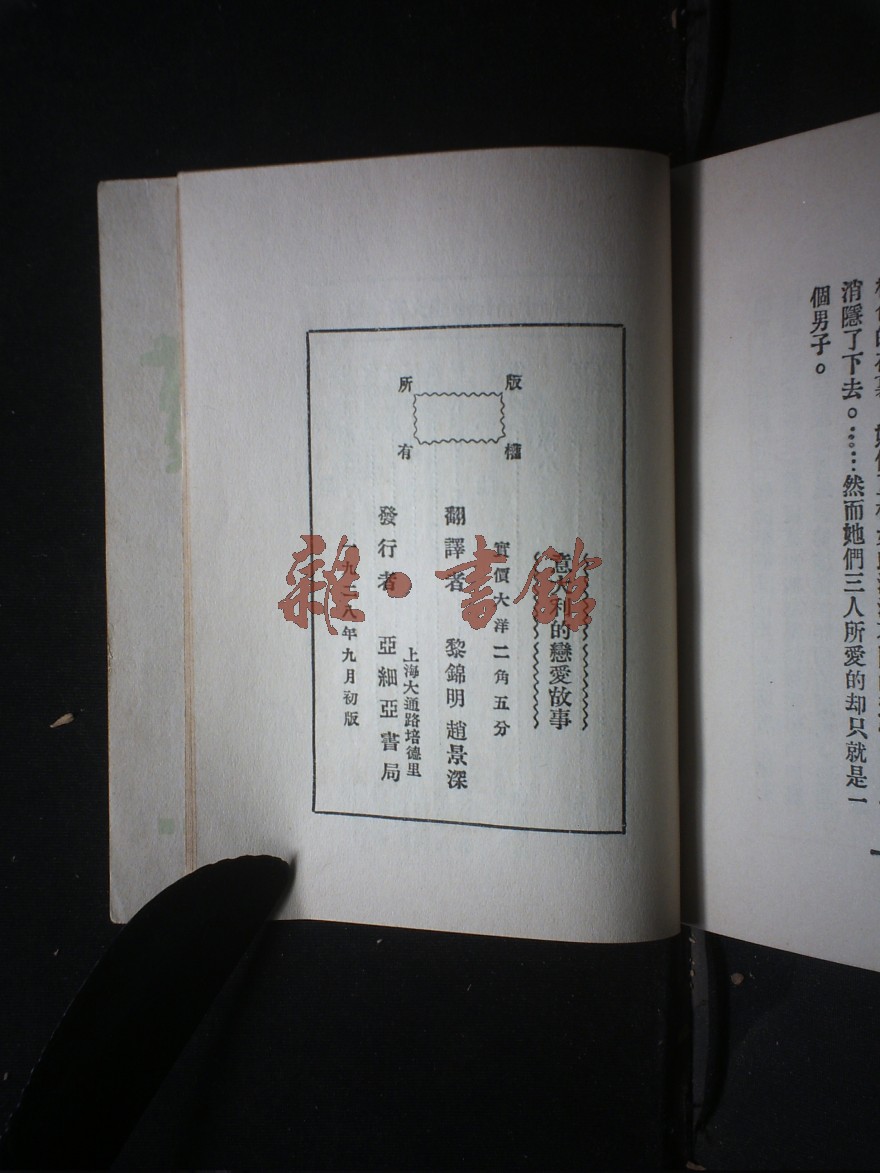 個男子。
消隱了下去。……然而她們三人所愛的却只就是一
版權
所有
意大利的戀愛故事
實價大洋二角五分
翻譯者 黎錦明 趙景深
上海大通路培德里
發行者 亞細亞書局
一九二八年九月初版
雜·書館